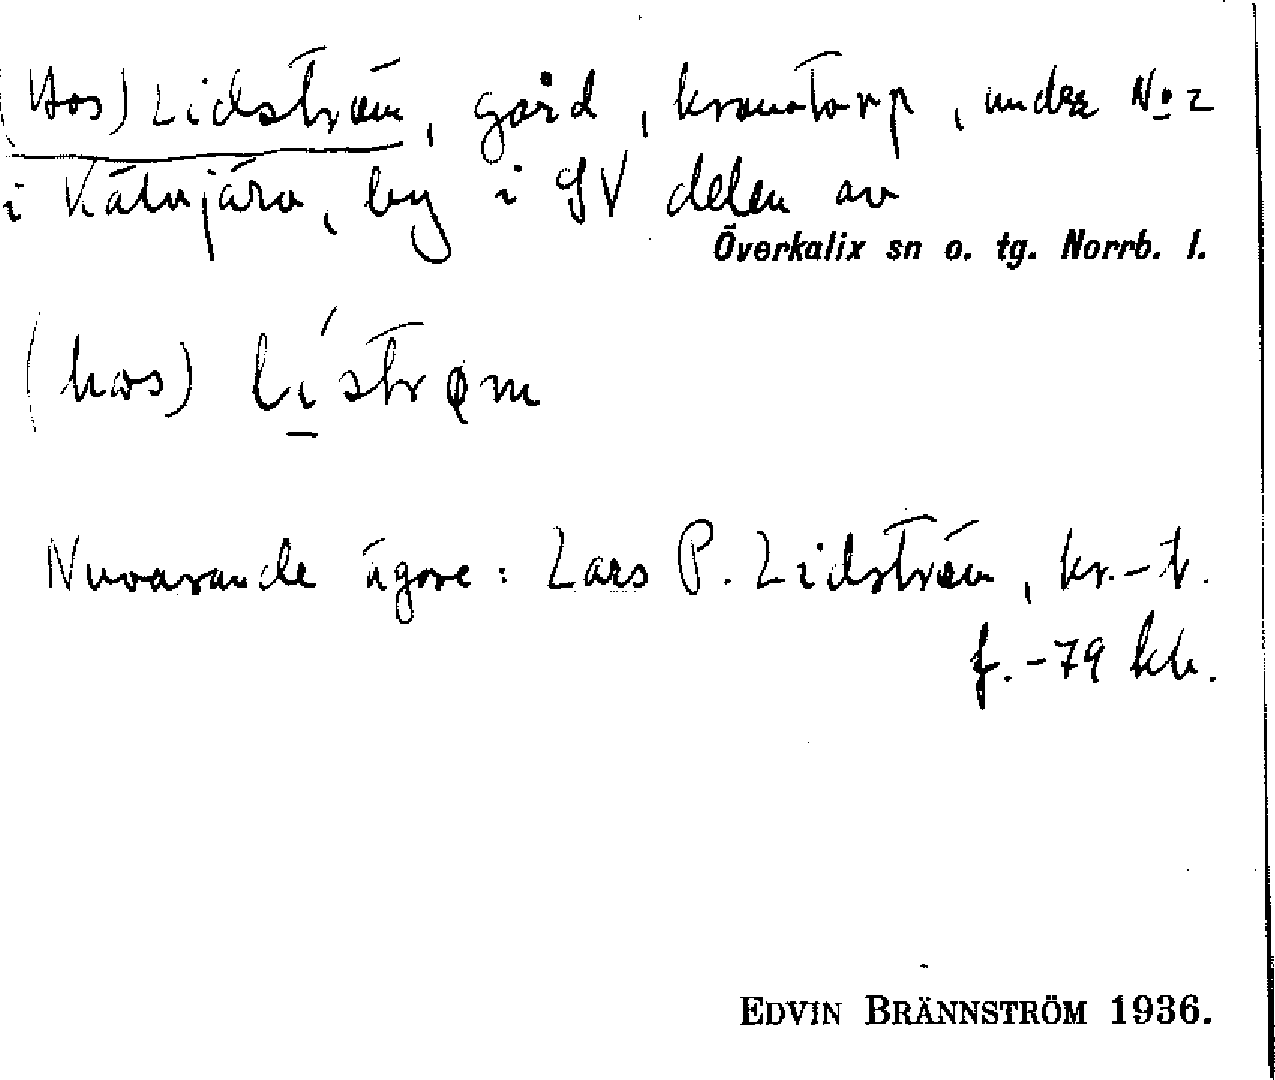 (Hos) Lidström, gård, kronotorp, under No 2
i Kätujärv, by i SV delen av
Överkalix sn o. tg. Norrb. l.
(hos)
Nuvarande ägare: Lars P. Lidström, kr.-t.
f. -79 hh.
EDVIN BRÄNNSTRÖM 1936.